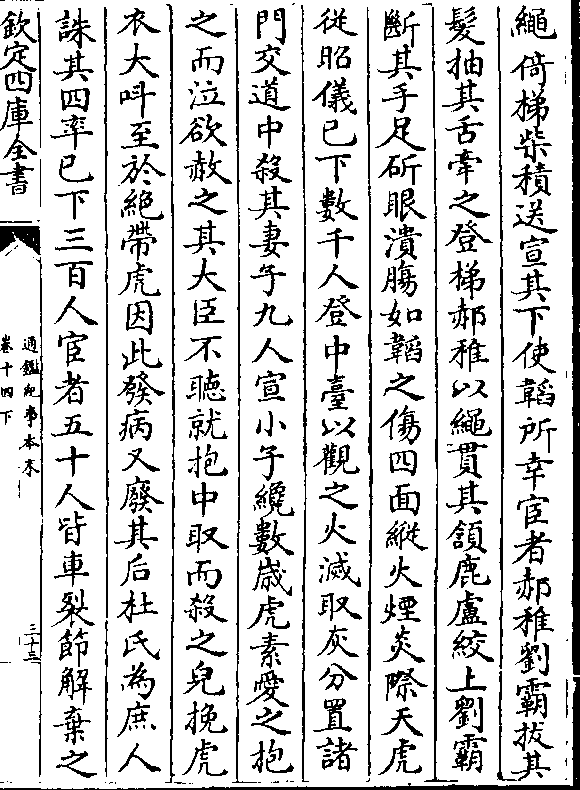 繩倚梯柴積送宣其下使韜所幸宦者郝稚劉霸拔其
髮抽其舌牽之登梯郝稚以繩貫其頷鹿盧絞上劉霸
斷其手足斫眼潰膓如韜之傷四面縱火煙炎際天虎
從昭儀已下數千人登中臺以觀之火滅取灰分置諸
門交道中殺其妻子九人宣小子纔數嵗虎素愛之抱
之而泣欲赦之其大臣不聽就抱中取而殺之兒挽虎
衣大呌至於絶帶虎因此發病又廢其后杜氏為庶人
誅其四率已下三百人宦者五十人皆車裂節解棄之
欽定四庫全書
通鑑紀事本末
卷十四下
三十三